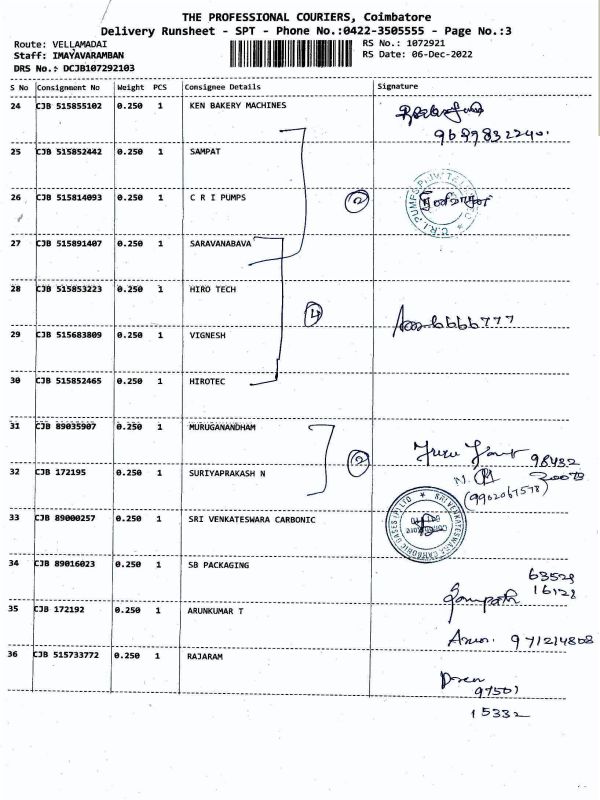 THE PROFESSIONAL COURIERS, Coimbatore
Delivery Runsheet - SPT - Phone No.:0422-3505555 - Page No.:3
Route: VELLAMADAI RS No.: 1072921
Staff: IMAYAVARAMBAN RS Date: 06-Dec-2022
DRS No.: DCJB107292103
S No Consignment No Weight PCS Consignee Details Signature
24 CJB 515855102 0.250 1 KEN BAKERY MACHINES
9689832240
25 CJB 515852442 0.250 1 SAMPAT
26 CJB 515814093 0.250 1 C R I PUMPS 2
27 CJB 515891407 0.250 1 SARAVANABAVA
28 CJB 515853223 0.250 1 HIRO TECH
4 6666777
29 CJB 515683809 0.250 1 VIGNESH
30 CJB 515852465 0.250 1 HIROTEC
31 CJB 89035907 0.250 1 MURUGANANDHAM
2 98432
32 CJB 172195 0.250 1 SURIYAPRAKASH N
(9902067578)
33 CJB 89000257 0.250 1 SRI VENKATESWARA CARBONIC
34 CJB 89016023 0.250 1 SB PACKAGING
63529
16128
Sampath
35 CJB 172192 0.250 1 ARUNKUMAR T
Arun. 971214808
36 CJB 515733772 0.250 1 RAJARAM
97501
15332